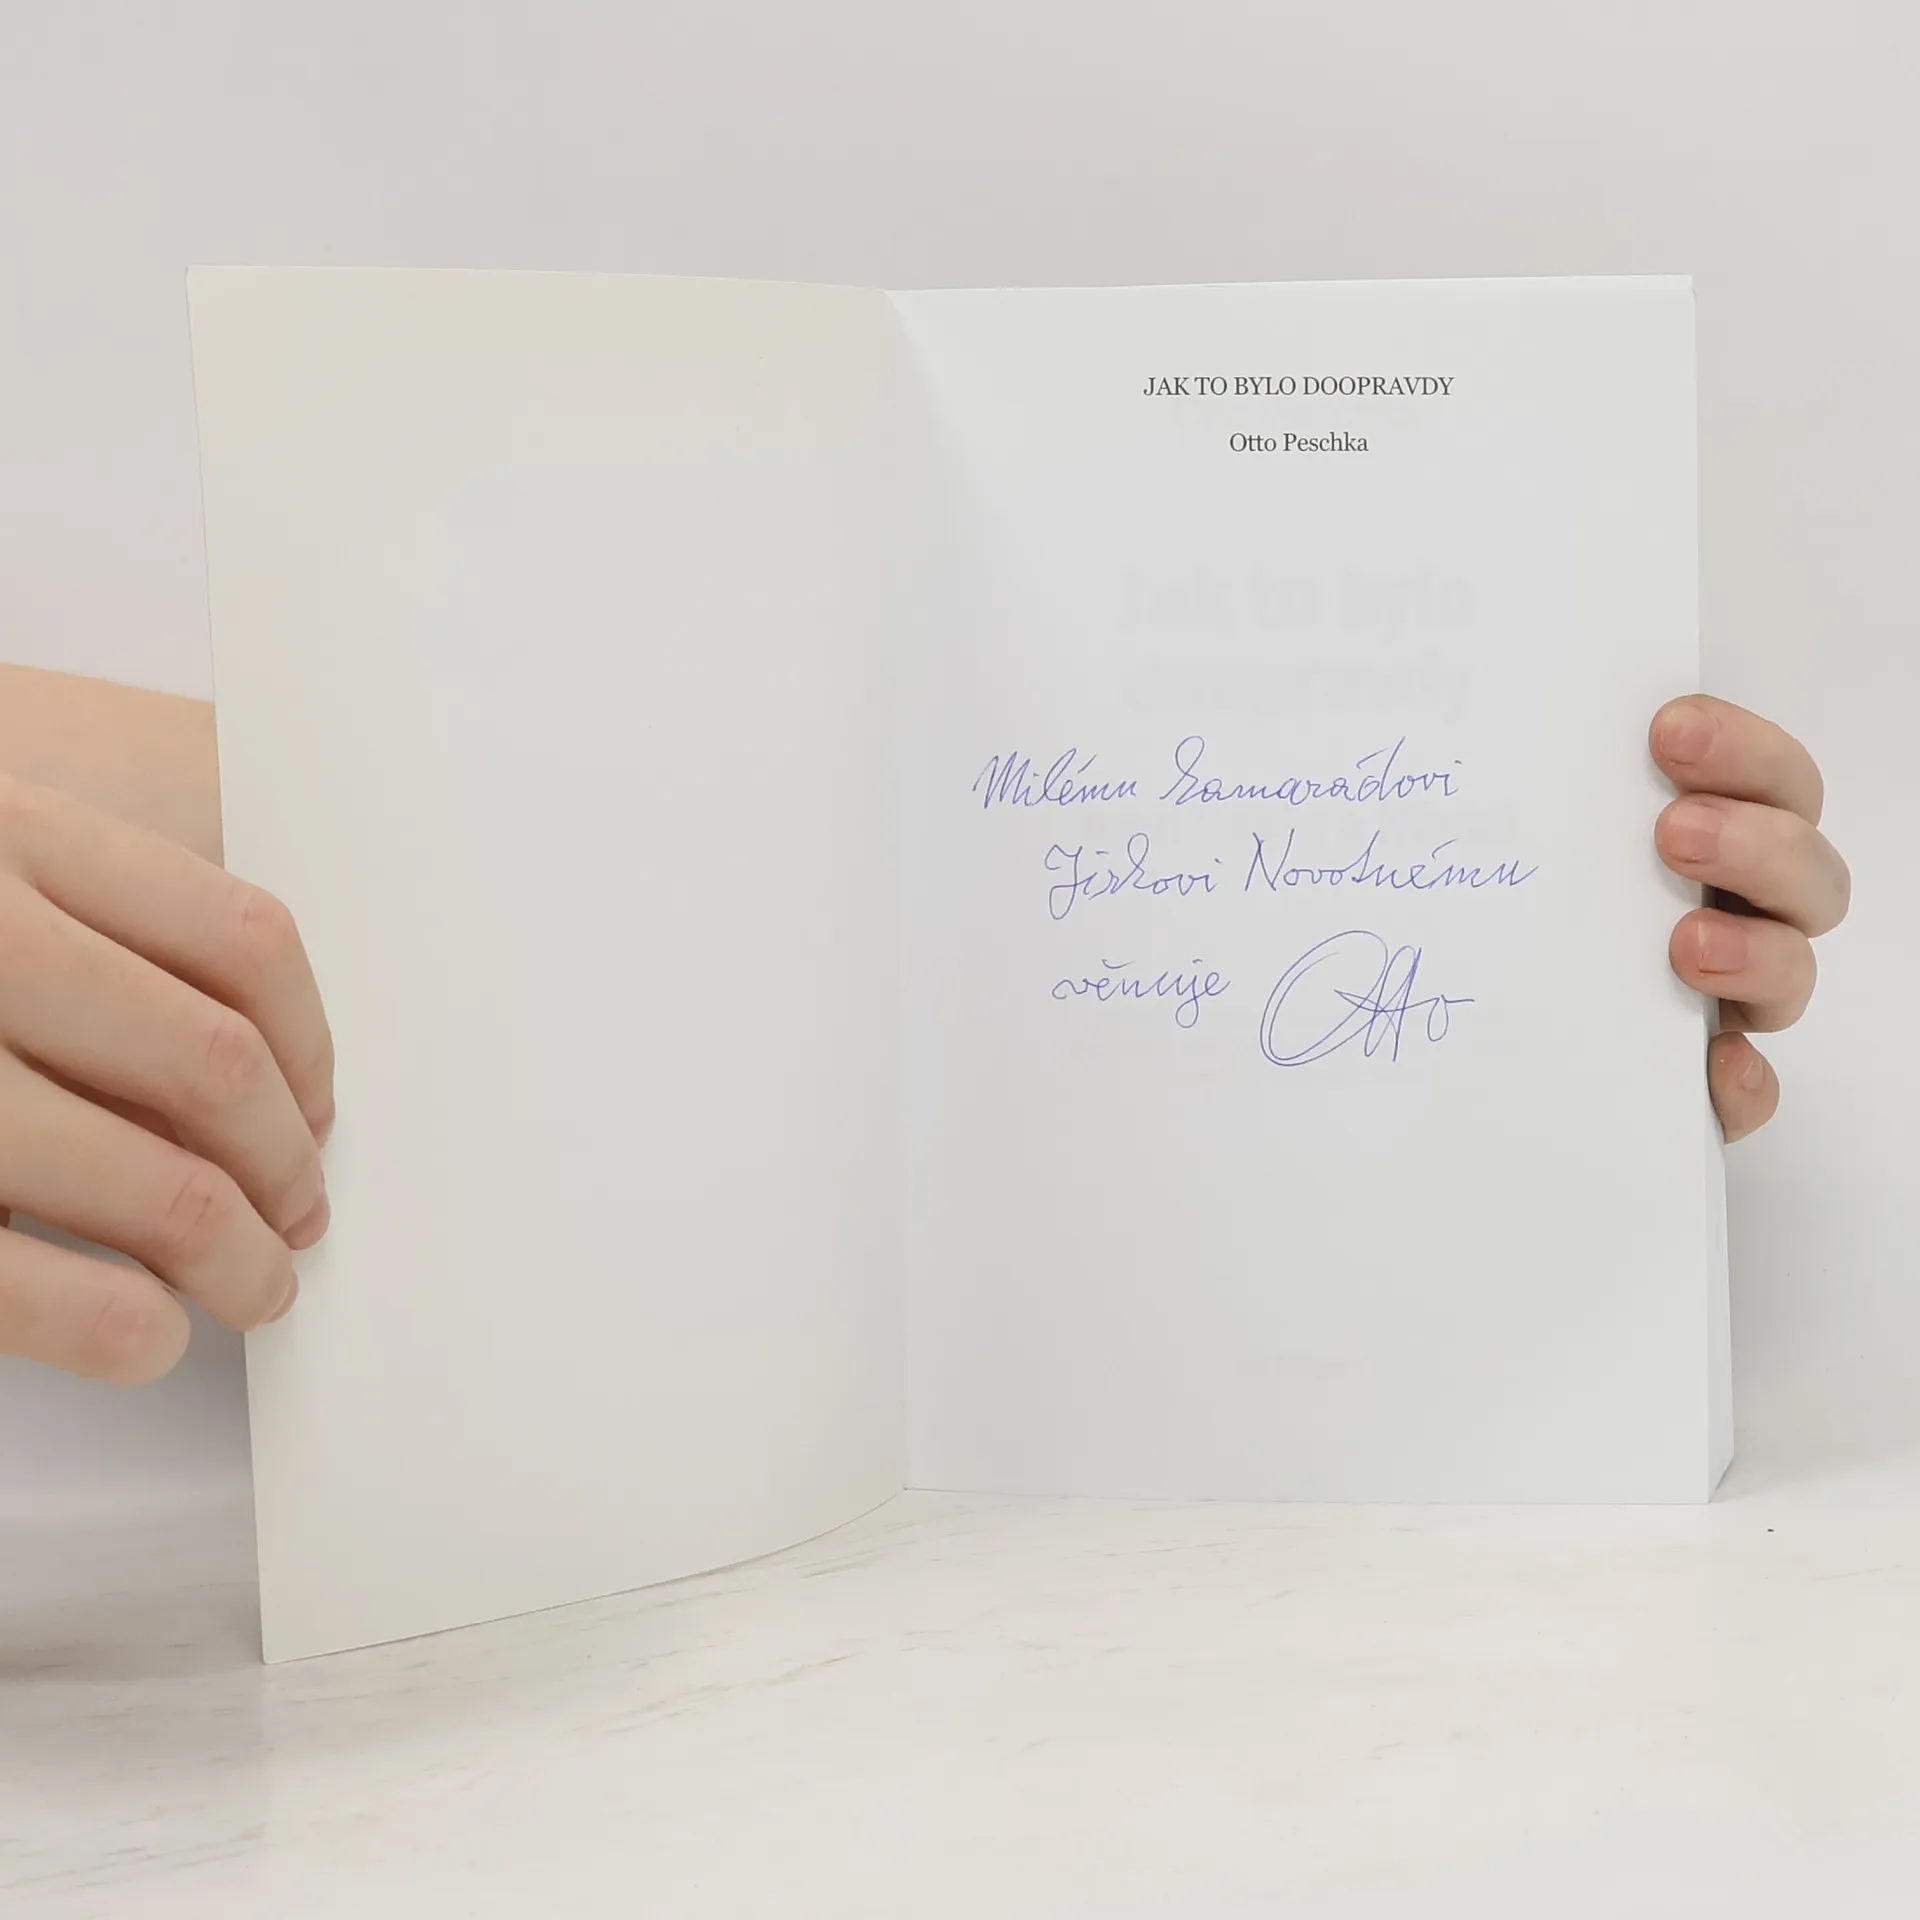 JAK TO BYLO DOOPRAVDY
Otto Peschka
Milému kamarádovi
Jirkovi Novotnému
věnuje Otto